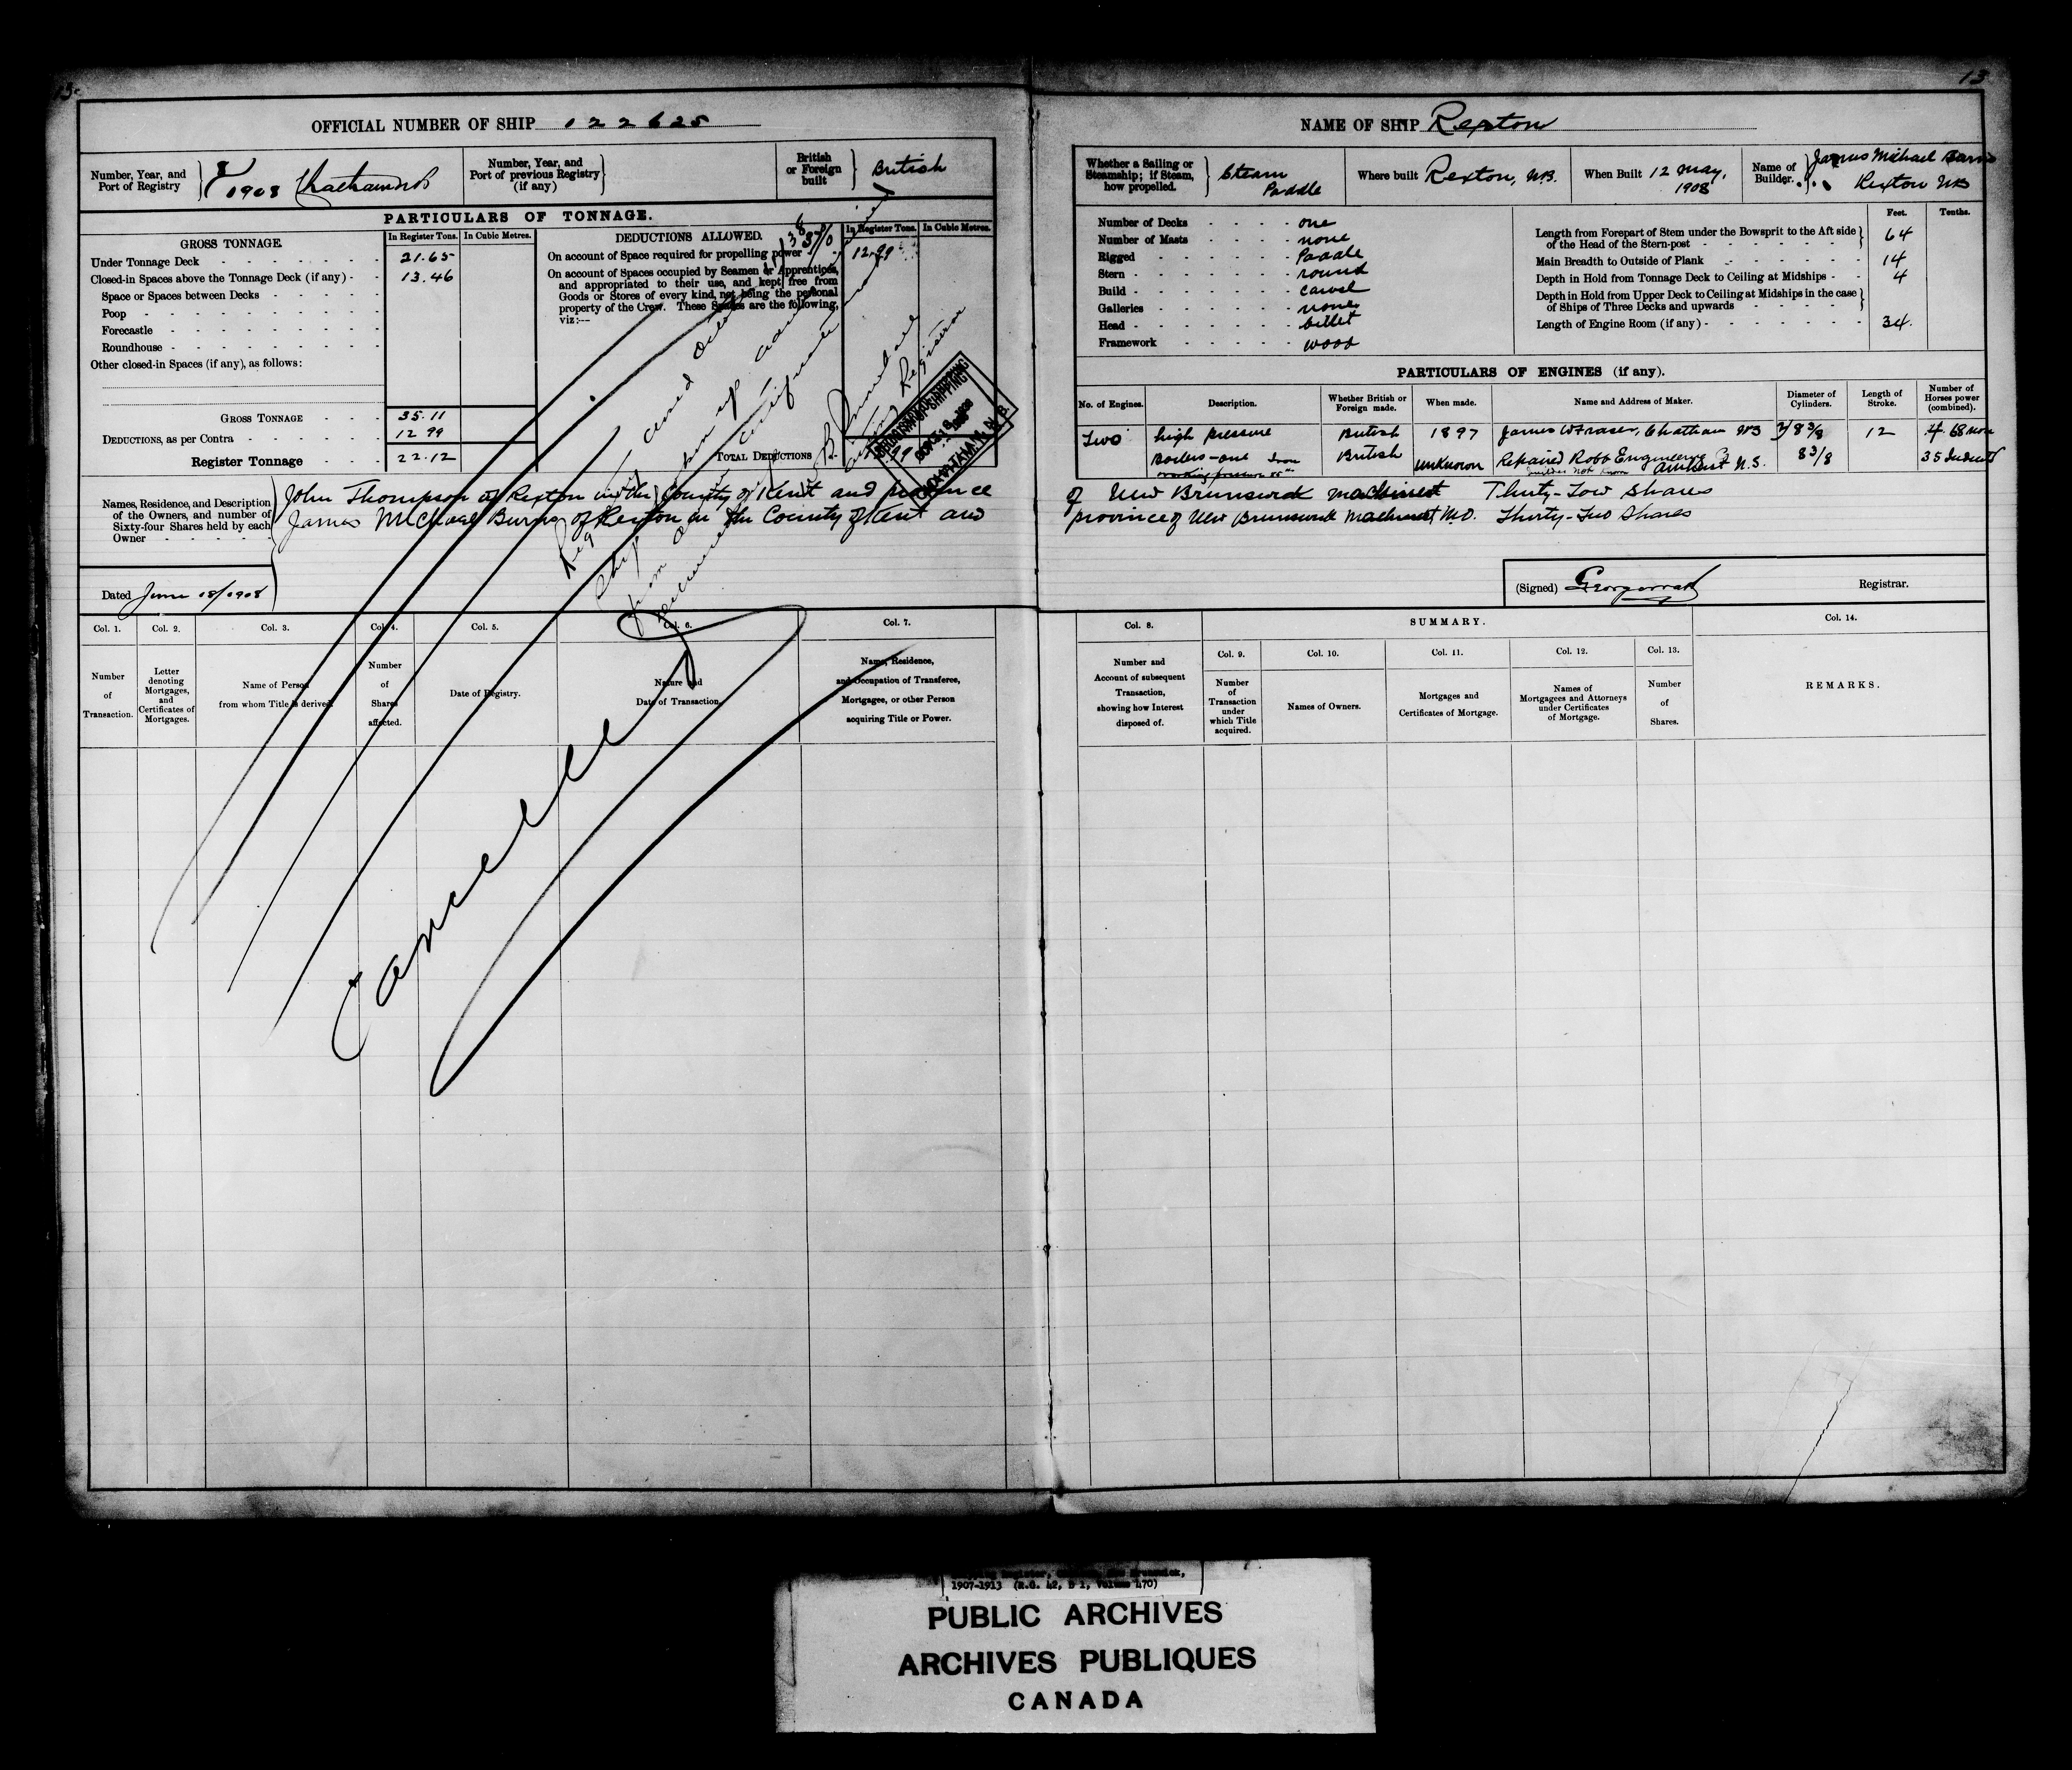 13
13
OFFICIAL NUMBER OF SHIP 122625
Number, Year, and Port of Registry
1908 Chatham NB
Number, Year, and Port of previous Registry (if any)
British or Foreign built
British
PARTICULARS OF TONNAGE.
GROSS TONNAGE.
In Register Tons.
In Cubic Metres.
DEDUCTIONS ALLOWED.
In Register Tons.
In Cubic Metres.
Under Tonnage Deck 21.65
Closed-in Spaces above the Tonnage Deck (if any) 13.46
Space or Spaces between Decks
Poop
Forecastle
Roundhouse
Other closed-in Spaces (if any), as follows:
On account of Space required for propelling power 12.99
On account of Spaces occupied by Seamen or Apprentices, and appropriated to their use, and kept free from Goods or Stores of every kind, not being the personal property of the Crew. These Spaces are the following, viz:—
GROSS TONNAGE 35.11
DEDUCTIONS, as per Contra 12 99
Register Tonnage 22.12
TOTAL DEDUCTIONS
Names, Residence, and Description of the Owners, and number of Sixty-four Shares held by each Owner
John Thompson of Rexton in the County of Kent and province
James Michael Burns of Rexton in the County of Kent and
Dated June 18/1908
Col. 1.
Col. 2.
Col. 3.
Col. 4.
Col. 5.
Col. 6.
Col. 7.
Number of Transaction.
Letter denoting Mortgages, and Certificates of Mortgages.
Name of Person from whom Title is derived.
Number of Shares affected.
Date of Registry.
Nature and Date of Transaction.
Name, Residence, and Occupation of Transferee, Mortgagee, or other Person acquiring Title or Power.
Cancelled
Acting Registrar
NAME OF SHIP Rexton
Whether a Sailing or Steamship; if Steam, how propelled.
Steam
Paddle
Where built Rexton, NB.
When Built 12 May, 1908
Name of Builder.
James Michael Burns
Rexton NB
Number of Decks one
Number of Masts none
Rigged Paddle
Stern round
Build carvel
Galleries none
Head billet
Framework wood
Feet.
Tenths.
Length from Forepart of Stem under the Bowsprit to the Aft side of the Head of the Stern-post 64
Main Breadth to Outside of Plank 14
Depth in Hold from Tonnage Deck to Ceiling at Midships 4
Depth in Hold from Upper Deck to Ceiling at Midships in the case of Ships of Three Decks and upwards
Length of Engine Room (if any) 34.
PARTICULARS OF ENGINES (if any).
No. of Engines.
Description.
Whether British or Foreign made.
When made.
Name and Address of Maker.
Diameter of Cylinders.
Length of Stroke.
Number of Horses power (combined).
Two
high pressure
British
1897
James W Fraser, Chatham NB
8 3/8
12
4.68 nom
Boilers—one Iron
British
unknown
Repaired Robb Engineering Co Amherst N.S.
8 3/8
35 Indicated
of New Brunswick machinest Thirty-Tow Shares
province of New Brunswick machinest M.O. Thirty-Two Shares
(Signed)
Registrar.
Col. 8.
SUMMARY.
Col. 14.
Col. 9.
Col. 10.
Col. 11.
Col. 12.
Col. 13.
Number and Account of subsequent Transaction, showing how Interest disposed of.
Number of Transaction under which Title acquired.
Names of Owners.
Mortgages and Certificates of Mortgage.
Names of Mortgagees and Attorneys under Certificates of Mortgage.
Number of Shares.
REMARKS.
1907-1913 (R.G. 42, D 1, Volume 470)
PUBLIC ARCHIVES
ARCHIVES PUBLIQUES
CANADA